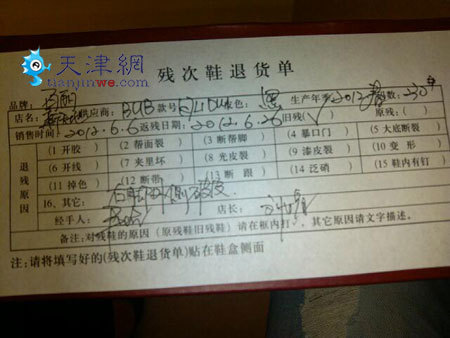 天津網
tianjinwe.com
残次鞋退货单
品牌：百丽 供应商：BUB 款号： 颜色：黑 生产年季：2012 鞋码数：230#
店名： 销售时间：2012.6.6 返残日期：2012.6.26 旧残(√ 原残：(
退残原因
(1 开胶 ) (2 帮面裂 ) (3 断帮脚 ) (4 暴口门 ) (5 大底断裂 )
(6 断带 ) (7 夹里坏 ) (8 光皮裂 ) (9 漆皮裂 ) (10 变 形 )
(11 掉色 ) (12 断 ) (13 断 跟 ) (14 泛硝 ) (15 鞋内有钉 )
16、其它：
经手人： 店长：
备注：对残鞋的原因（原残鞋旧残鞋）请在框内打 ，其它原因请文字描述。
注：请将填写好的(残次鞋退货单)贴在鞋盒侧面